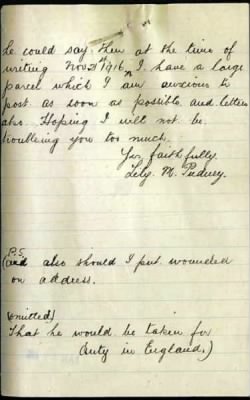 he could say then at the time of
writing Nov 21st 1916, I have a large
parcel which I am anxious to
post as soon as possible and letters
also. Hoping I will not be
troubleing you too much.
Yrs faithfully.
Lily. M. Pudney.
P.S.
(and also should I put wounded
on address.
(omitted)
That he would be taken for
duty in England.)